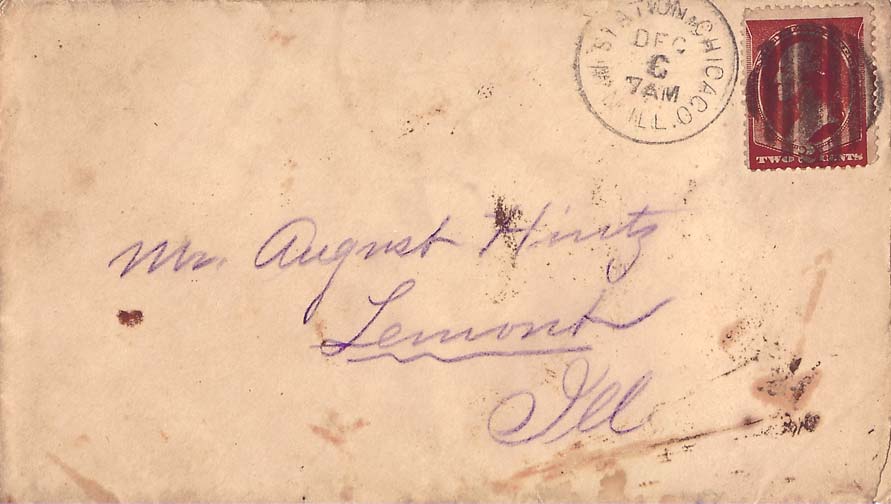 STATION CHICAGO, ILL.
DEC
6
7 AM
TWO CENTS
Mr. August Hintz
Lemont
Ill